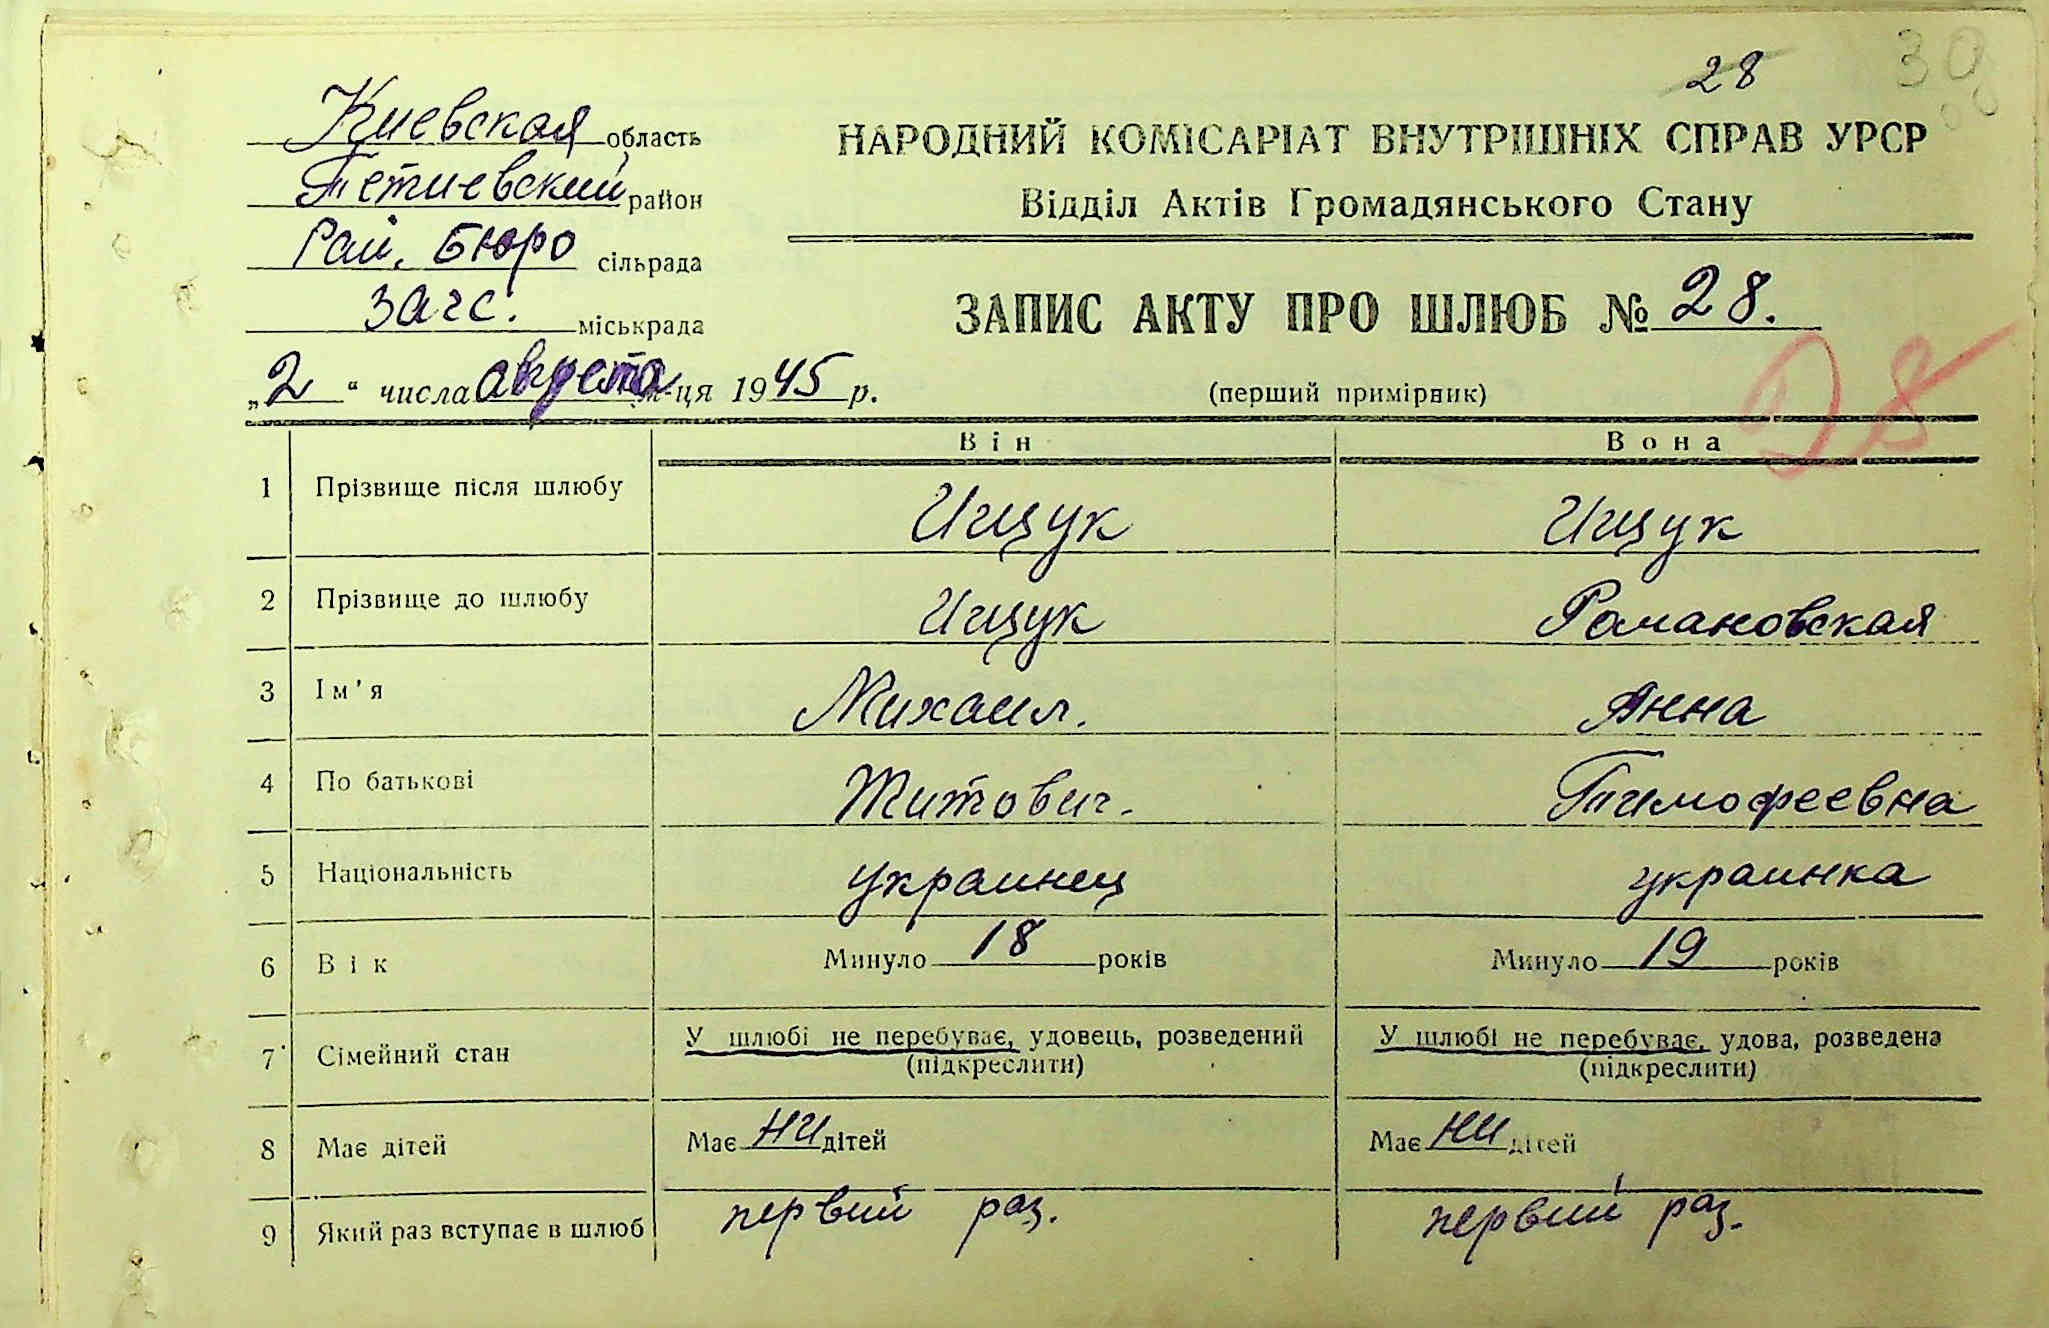 28 30
Киевская область
Тетиевский район
Рай. Бюро сільрада
загс. міськрада
„2“ числа августа м-ця 1945 р.
НАРОДНИЙ КОМІСАРІАТ ВНУТРІШНІХ СПРАВ УРСР
Відділ Актів Громадянського Стану
ЗАПИС АКТУ ПРО ШЛЮБ № 28.
(перший примірник)
28
Він Вона
1 Прізвище після шлюбу Ищук Ищук
2 Прізвище до шлюбу Ищук Романовская
3 Ім'я Михаил. Анна
4 По батькові Титович. Тимофеевна
5 Національність украинец украинка
6 Вік Минуло 18 років Минуло 19 років
7 Сімейний стан У шлюбі не перебуває, удовець, розведений У шлюбі не перебуває, удова, розведена
(підкреслити) (підкреслити)
8 Має дітей Має ни дітей Має ни дітей
9 Який раз вступає в шлюб первий раз. первий раз.